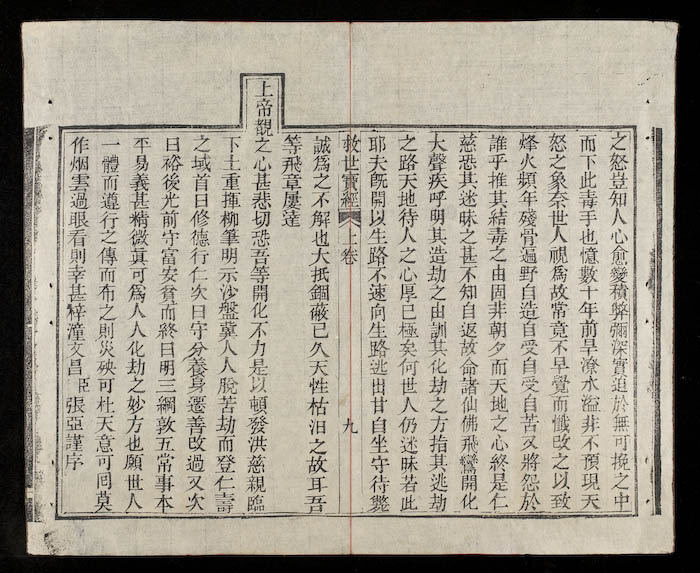 之怒豈知人心愈變積弊彌深實迫於無可挽之中
而下此毒手也憶數十年前旱潦水溢非不預現天
怒之象奈世人視爲故常竟不早覺而懺改之以致
烽火頻年殘骨遍野自造自受自受自苦又將怨於
誰乎推其結毒之由固非朝夕而天地之心終是仁
慈恐其迷昧之甚不知自返故命諸仙佛飛鸞開化
大聲疾呼明其造劫之由訓其化劫之方指其逃劫
之路天地待人之心厚已極矣何世人仍迷昧若此
耶夫既開以生路不速向生路逃出甘自坐守待斃
救世寶經 上卷 九
誠爲之不解也大抵錮蔽已久天性枯汨之故耳吾
等飛章屢達
上帝覩之心甚悲切恐吾等開化不力是以頓發洪慈親臨
下土重揮柳筆明示沙盤冀人人脫苦劫而登仁壽
之域首曰修德行仁次曰守分養身遷善改過又次
曰裕後光前守富安貧而終曰明三綱敦五常事本
平易義甚精微真可爲人人化劫之妙方也願世人
一體而遵行之傳而布之則災殃可杜天意可回莫
作烟雲過眼看則幸甚梓潼文昌臣張亞謹序